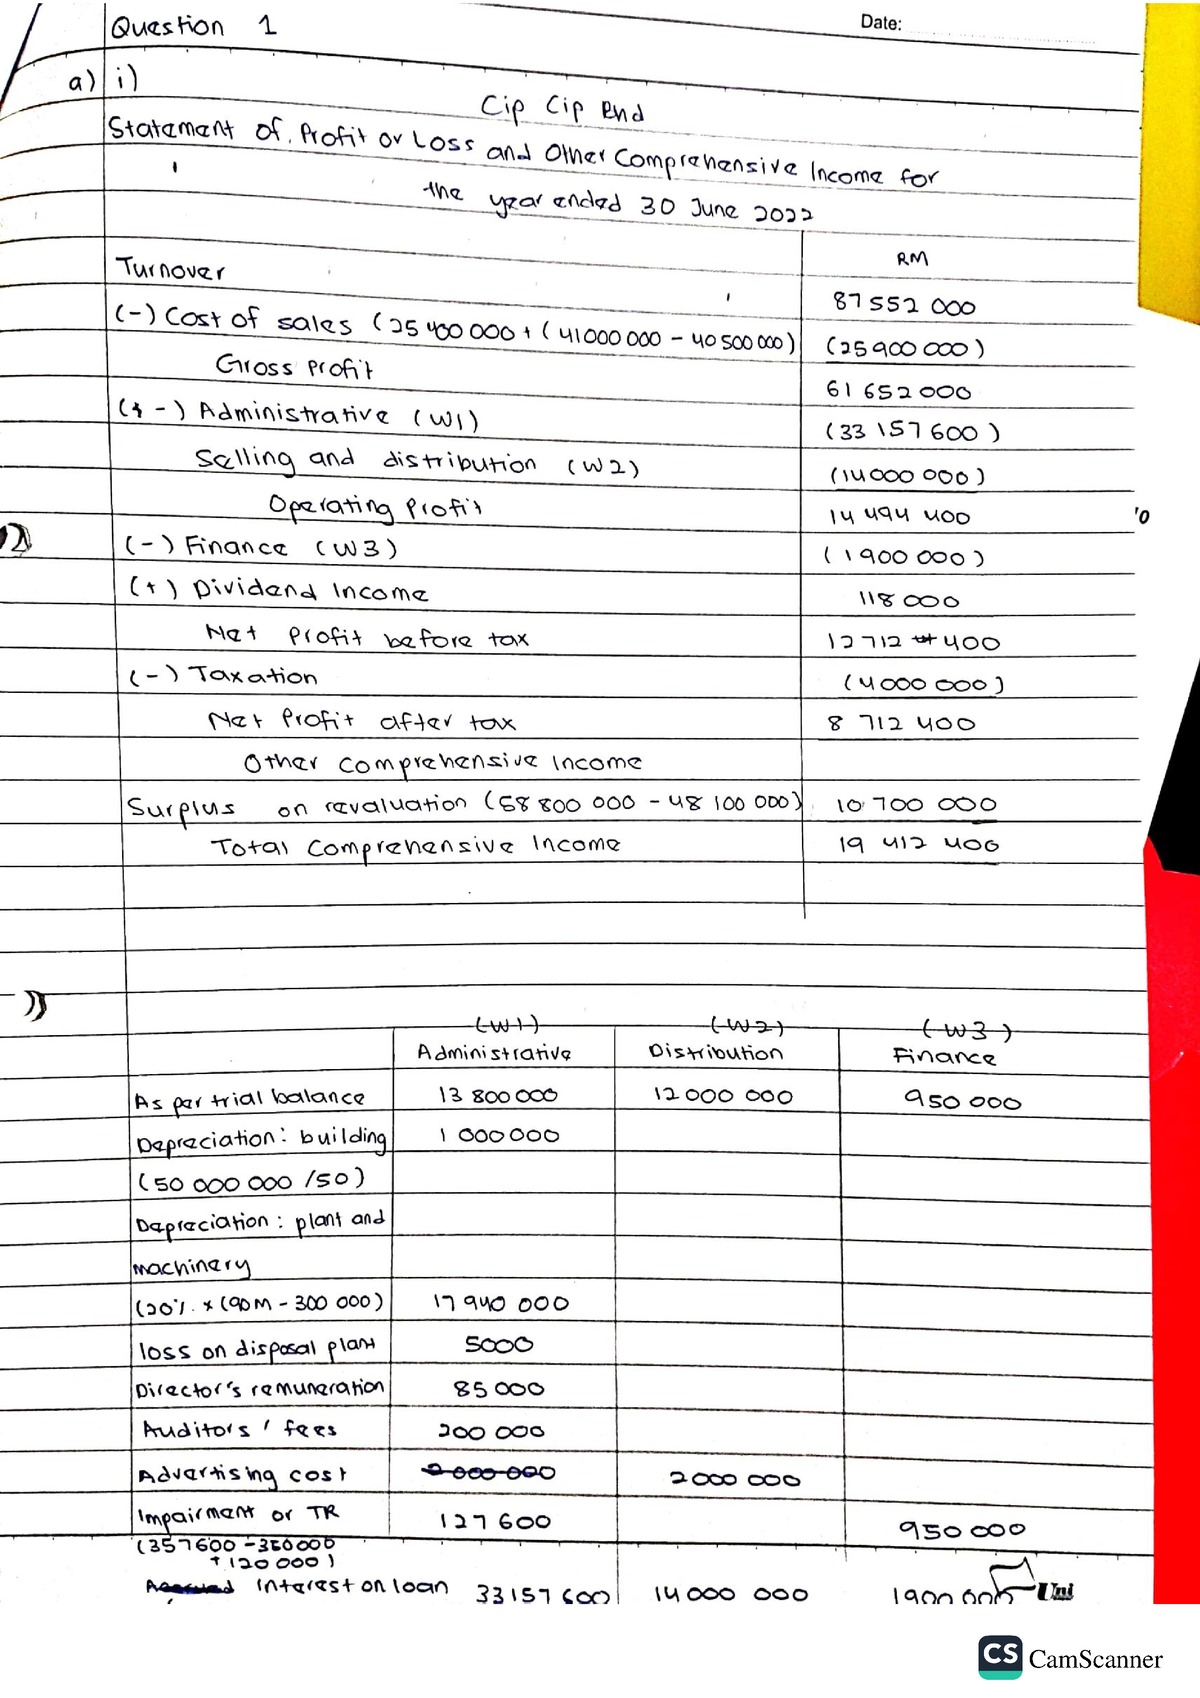 Question 1
Date:
a) i)
Cip Cip Bhd
Statement of Profit or Loss and Other Comprehensive Income for
the year ended 30 June 2022
RM
Turnover 87 552 000
(-) Cost of sales (25 400 000 + (41 000 000 - 40 500 000) (25 900 000)
Gross Profit 61 652 000
(-) Administrative (W1) (33 157 600)
Selling and distribution (W2) (14 000 000)
Operating Profit 14 494 400
(-) Finance (W3) (1 900 000)
(+) Dividend Income 118 000
Net Profit before tax 12 712 400
(-) Taxation (4 000 000)
Net Profit after tax 8 712 400
Other comprehensive Income
Surplus on revaluation (58 800 000 - 48 100 000) 10 700 000
Total comprehensive Income 19 412 400
(W1) (W2) (W3)
Administrative Distribution Finance
As per trial balance 13 800 000 12 000 000 950 000
Depreciation: building 1 000 000
(50 000 000 /50)
Depreciation: plant and
machinery
(20% x (90M - 300 000) 17 940 000
loss on disposal plant 5000
Director's remuneration 85 000
Auditors' fees 200 000
Advertising cost 2 000 000 2 000 000
Impairment or TR 127 600 950 000
(357600 - 350000
+ 120 000)
Interest on loan 33 157 600 14 000 000 1 900 000
Uni
CS CamScanner